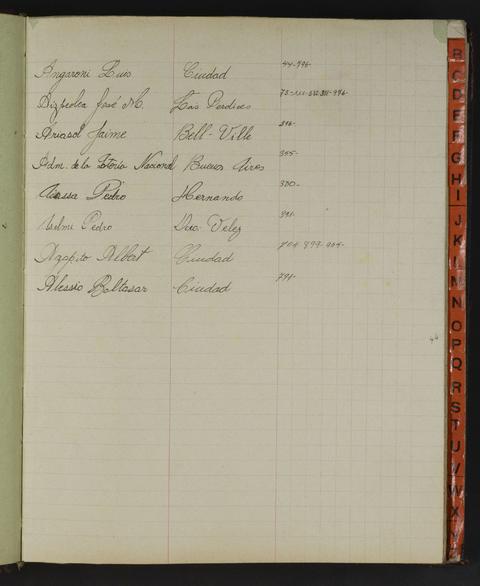 Angaroni Luis Ciudad 44-996-
Aizpeolea José M. Las Perdices
Ariasol Jaime Bell-Ville
Adm. de la Lotería Nacional Buenos Aires 355-
Pedro Hernando 380-
Pedro Dto. Velez
Agapito Albert Ciudad 704-899-904-
Alessio Baltasar Ciudad 791-
B
C
D
E
F
G
H
I
J
K
L
M
N
O
P
Q
R
S
T
U
V
W
X
Y
Z